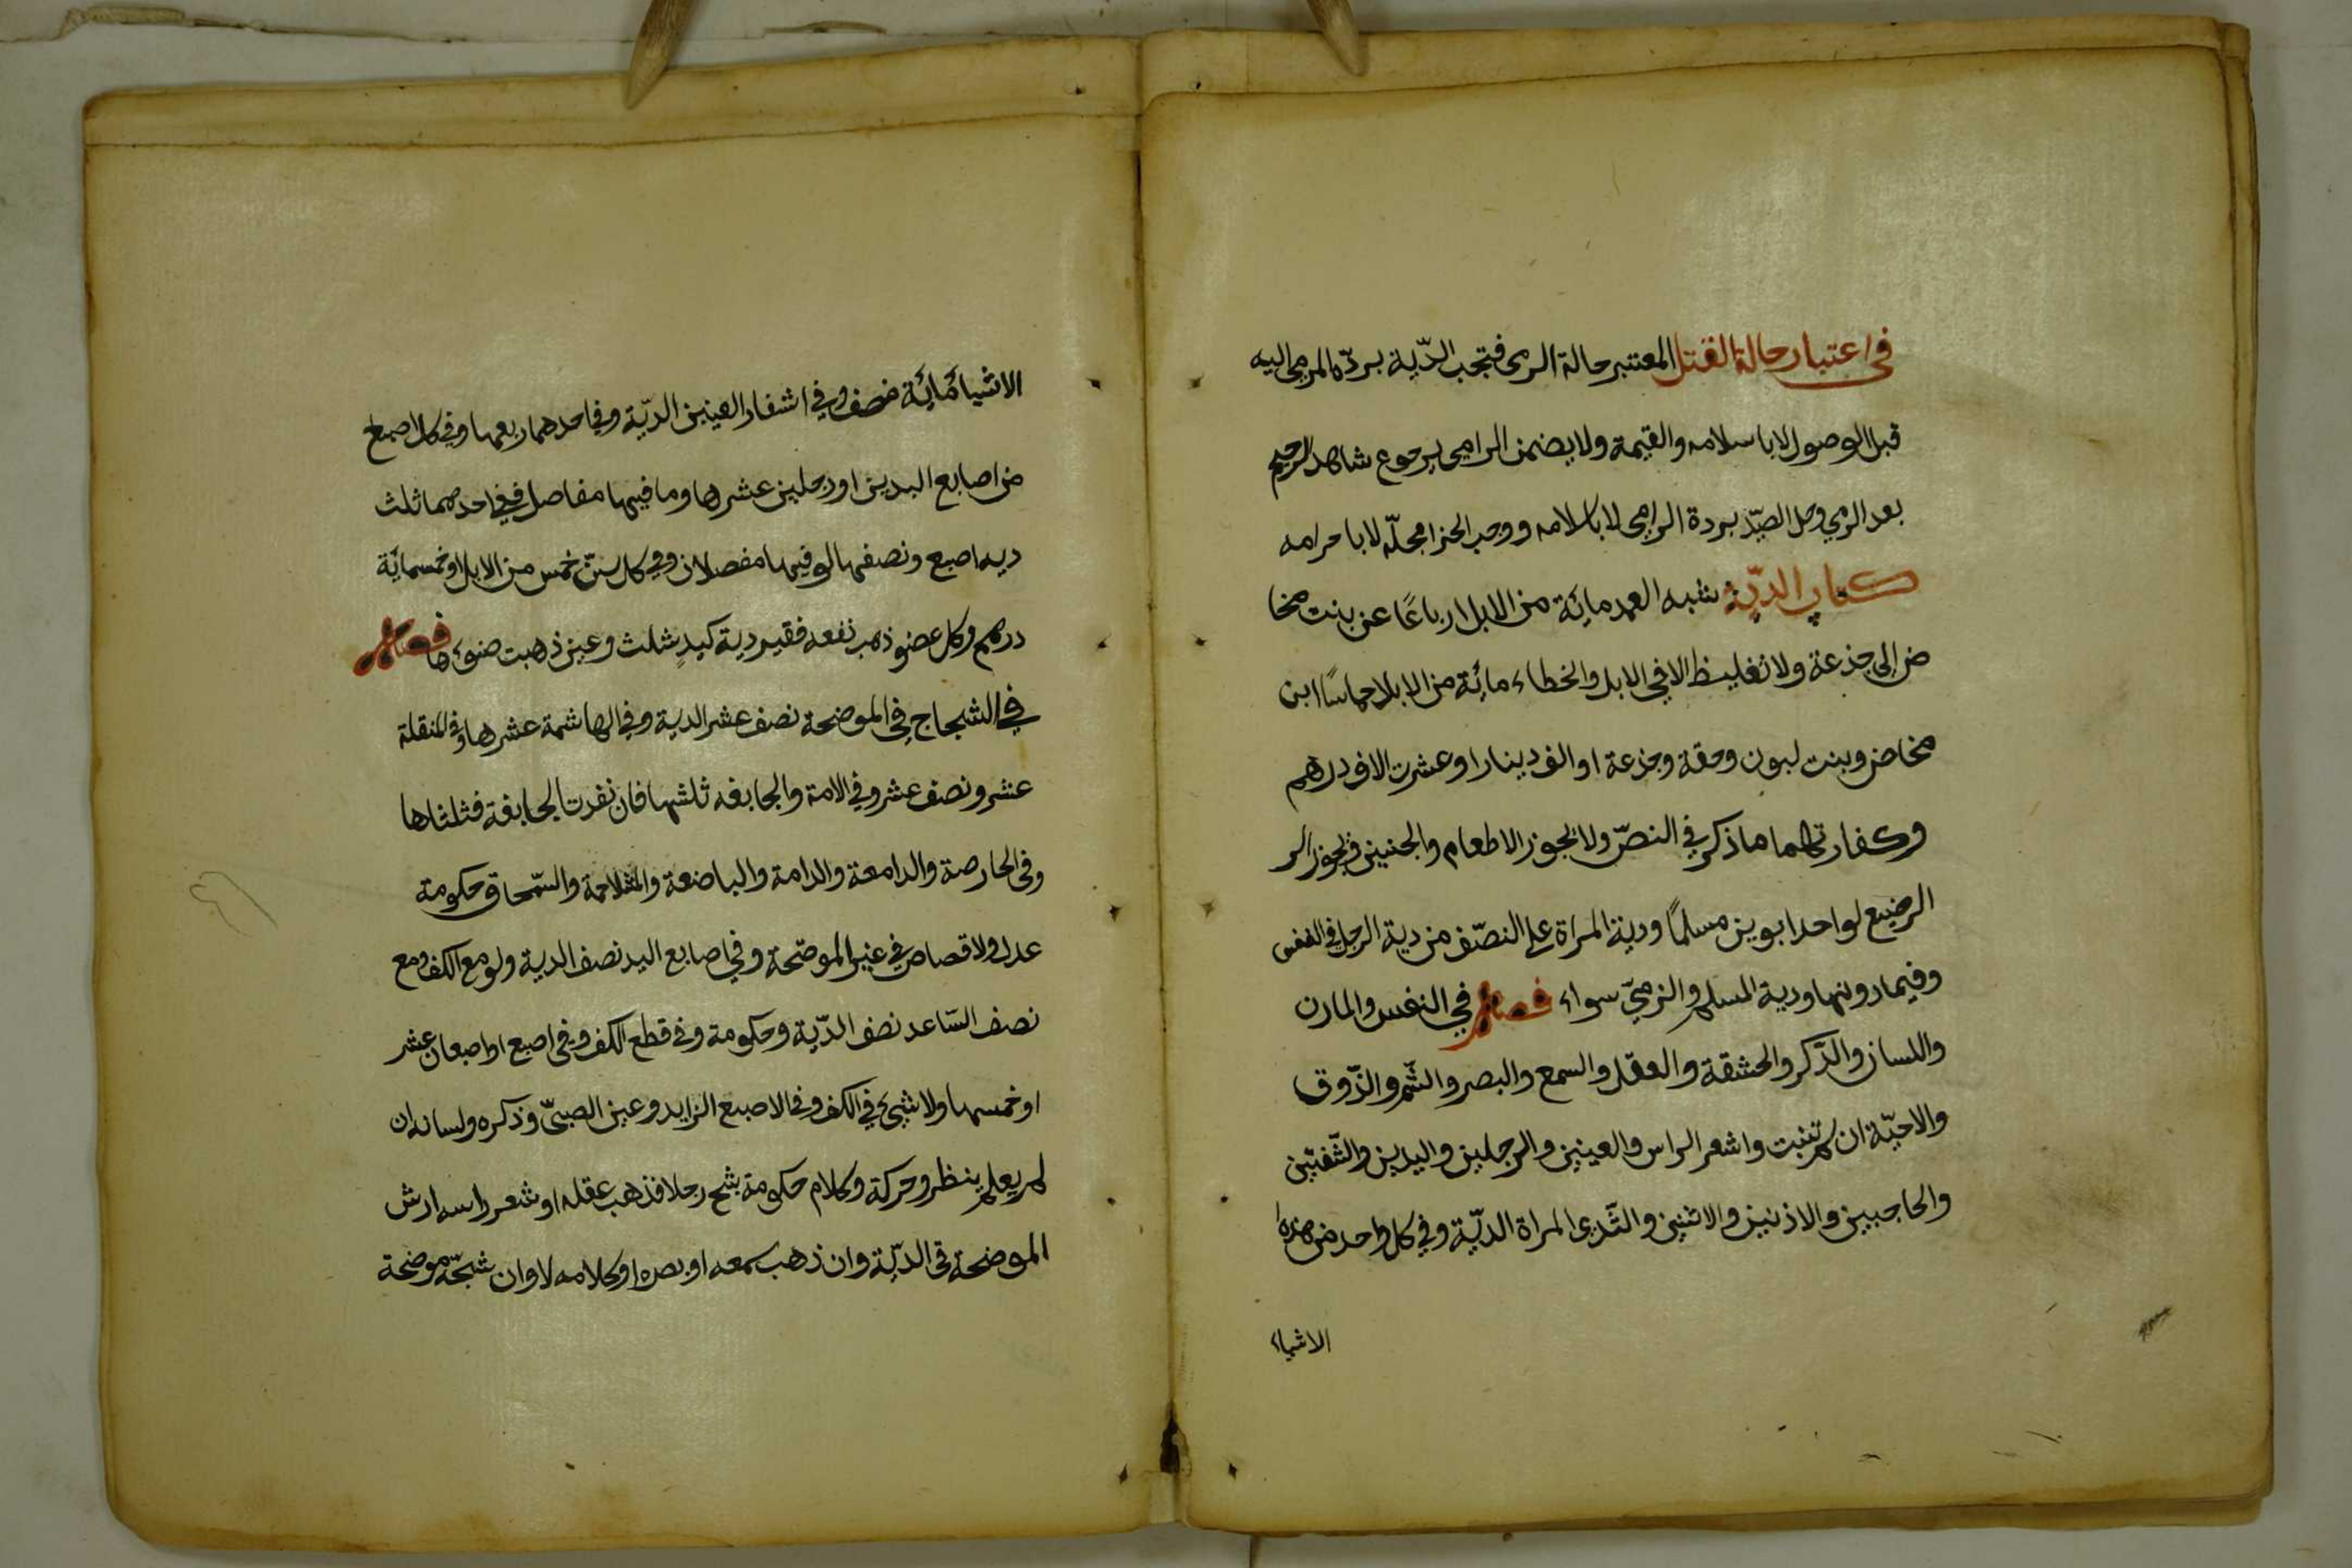 في اعتبار حالة القتل المعتبر حالة الرمى فتجب الدّية بردّه المرمى اليه
قبل الوصول لا باسلامه والقيمة ولا يضمن الرامى برجوع شاهد الرجيم
بعد الرمي وحل الصيّد بردة الرامى لا باسلامه ووجب الجزا بحلّه لا باحرامه
كتاب الديّة شبه العمد مائة من الابل ارباعًا عن بنت مخا
ض إلى جذعة ولا تغليظ الا في الابل والخطاء مائة من الابل اخماسًا ابن
مخاض وبنت لبون وحقة وجذعة او الف دينار او عشرت الاف درهم
وكفارتهما ما ذكر في النصّ ولا يجوز الاطعام والجنين ويجوز الر
الرضيع لو احد ابوين مسلمًا ودية المراة على النصّف من دية الرجل في النفس
وفيما دونها ودية المسلم والذميّ سواء فصل في النفس والمارن
واللسان والذّكر والحشفة والعقل والسمع والبصر والشّم والذّوق
والاحيّة ان لم تنبت واشعر الراس والعينين والرجلين واليدين والشّفتين
والحاجبين والاذنين والانثنين والثّدى المراة الديّة وفي كل واحد من هذه
الاشياء
الاشيا مائة نصف وفي اشفار العينين الديّة وفي احدهما ربعها وفي كل اصبع
من اصابع اليدين او رجلين عشرها وما فيها مفاصل ففي احدهما ثلث
ديه اصبع ونصفها لو فيها مفصلان وفي كل سنّ خمس من الابل او خمسمائة
درهم وكل عضو ذهب نفعه فقيه دية كيدٍ شلت وعين ذهبت ضوءها فصل
في الشجاج في الموضحة نصف عشر الدية وفي الهاشمة عشرها وفي المنقلة
عشر ونصف عشر وفي الامة والجايفه ثلثها فان نفدت الجايفة فثلثاها
وفي الحارصة والدامعة والدامة والباضعة والمتلاحمة والسّمحاق حكومة
عدل ولا قصاص في غير الموضّحة وفي اصابع اليد نصف الدية ولو مع الكف ومع
نصف السّاعد نصف الدّية وحكومة وفي قطع الكف وفي اصبع او اصبعان عشر
او خمسها ولا شيء في الكف وفي الاصبع الزايد وعين الصبىّ وذكره ولسانه ان
لم يعلم بنظر وحركة وكلام حكومة بشج رجلا فذهب عقله او شعر راسه ارش
الموضحة في الديّة وان ذهب سمعه او بصره او كلامه لا وان شجّه موضحة